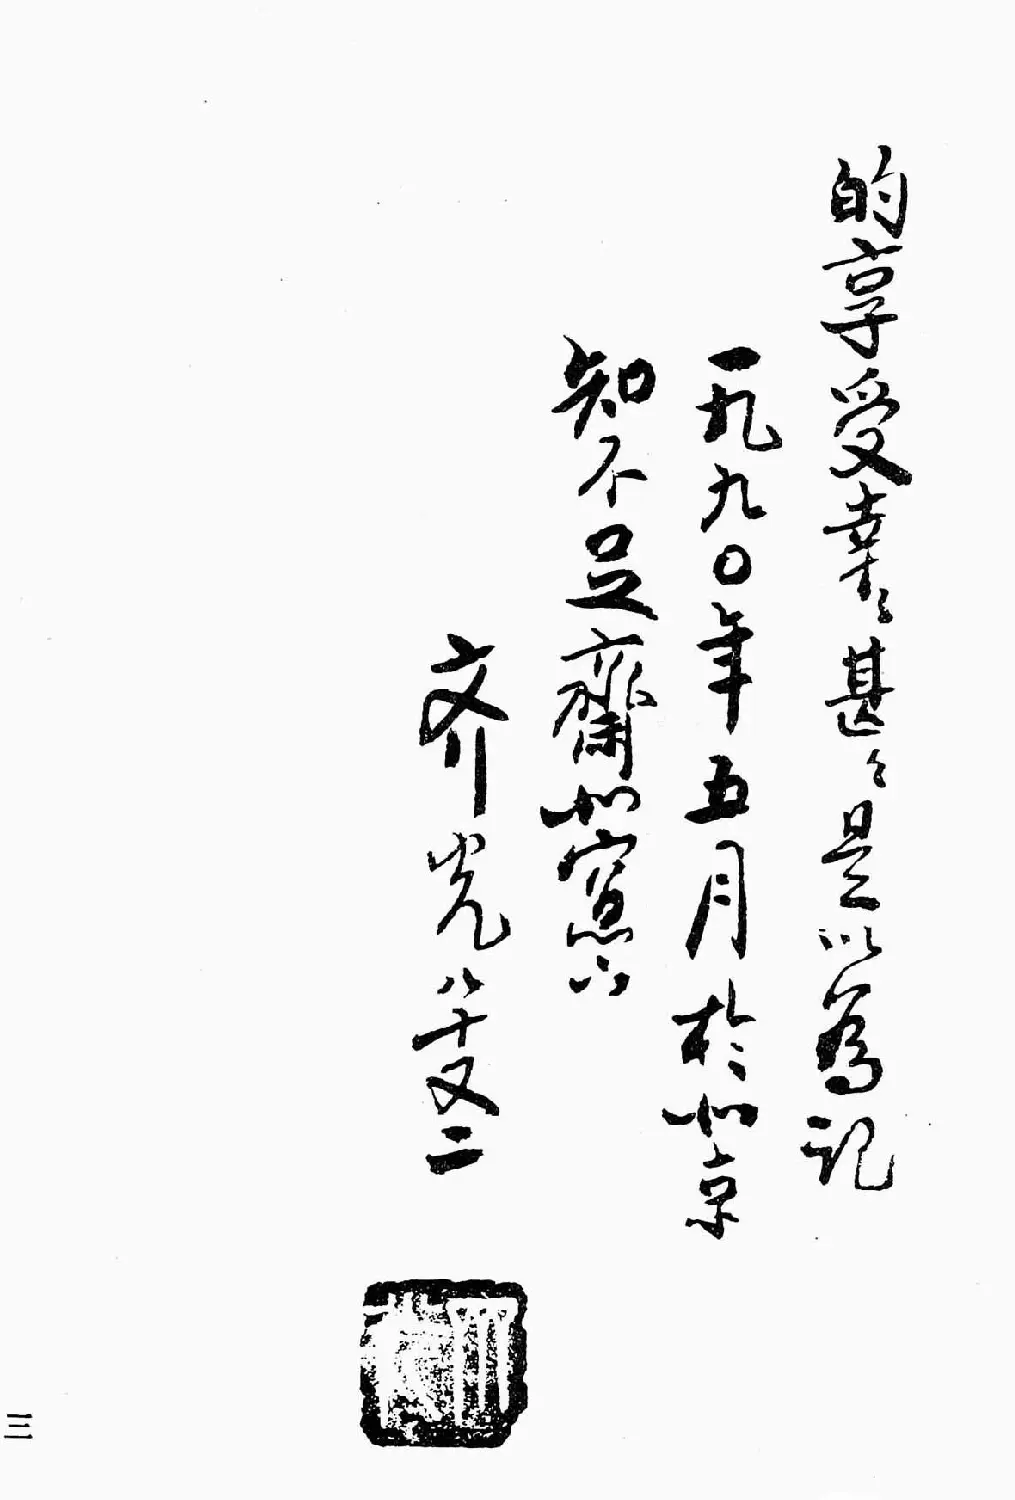 的享受幸〻甚〻是以為記
一九九〇年五月於北京
知不足齋北窗下
齐光八十又二
三